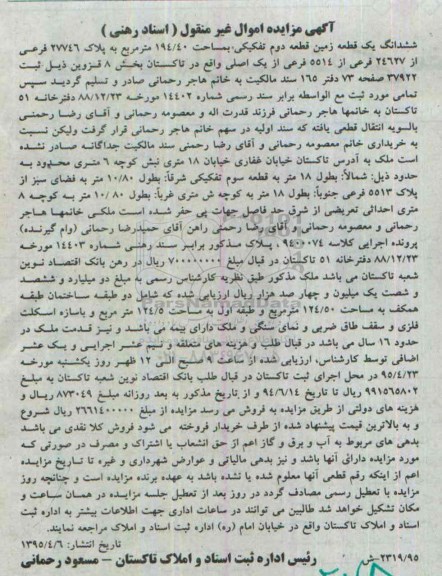 آگهی مزایده اموال غیر منقول ( اسناد رهنی )
ششدانگ یک قطعه زمین قطعه دوم تفکیکی بمساحت ۱۹۴/۴۰ مترمربع به پلاک ۲۷۷۴۶ فرعی
از ۲۴۶۲۷ فرعی از ۵۵۱۴ فرعی از یک اصلی واقع در تاکستان بخش ۸ قزوین ذیل ثبت
۳۷۹۲۲ صفحه ۷۳ دفتر ۱۶۵ سند مالکیت به خانم هاجر رحمانی صادر و تسلیم گردید سپس
تمامی مورد ثبت مع الواسطه برابر سند رسمی شماره ۱۴۴۰۲ مورخه ۸۸/۱۲/۲۳ دفترخانه ۵۱
تاکستان به خانمها هاجر رحمانی فرزند قدرت اله و معصومه رحمانی و آقای رضا رحمنی
بالسویه انتقال قطعی یافته که سند اولیه در سهم خانم هاجر رحمانی قرار گرفت ولیکن نسبت
به خریداری خانم معصومه رحمانی و آقای رضا رحمنی سند مالکیت جداگانه صادر نشده
است ملک به آدرس تاکستان خیابان غفاری خیابان ۱۸ متری نبش کوچه ۶ متری محدود به
حدود ذیل: شمالاً: بطول ۱۸ متر به قطعه سوم تفکیکی شرقاً: بطول ۱۰/۸۰ متر به فضای سبز از
پلاک ۵۵۱۳ فرعی جنوباً: بطول ۱۸ متر به کوچه ش متری غرباً: بطول ۱۰/۸۰ متر به کوچه ۸
متری احداثی تعریضی از شرق حد فاصل جهات پی حفر شده است ملکی خانمها هاجر
رحمانی و معصومه رحمانی و آقای رضا رحمنی راهن آقای حمیدرضا رحمانی (وام گیرنده)
پرونده اجرایی کلاسه ۹۴۰۰۰۷۴ ، پلاک مذکور برابر سند رهنی شماره ۱۴۴۰۳ مورخه
۸۸/۱۲/۲۳ دفترخانه ۵۱ تاکستان در قبال مبلغ ۷۰۰۰۰۰۰۰۰ ریال در رهن بانک اقتصاد نوین
شعبه تاکستان می باشد ملک مذکور طبق نظریه کارشناس رسمی به مبلغ دو میلیارد و ششصد
و شصت یک میلیون و چهار صد هزار ریال ارزیابی شده که شامل دو طبقه ساختمان طبقه
همکف به مساحت ۱۲۴/۵۰ مترمربع و طبقه اول به مساحت ۱۲۴/۵ متر مربع و باسازه اسکلت
فلزی و سقف طاق ضربی و نمای سنگی و ملک دارای بیمه می باشد و نیز قدمت ملک در
حدود ۱۶ سال می باشد در قبال طلب و هزینه های متعلقه و نیم عشر اجرایی و یک عشر
اضافی توسط کارشناس، ارزیابی شده از ساعت ۹ صبح الی ۱۲ ظهر روز یکشنبه مورخه
۹۵/۴/۲۳ در محل اجرای ثبت تاکستان در قبال طلب بانک اقتصاد نوین شعبه تاکستان به مبلغ
۹۹۱۵۶۵۸۰۲ ریال تا تاریخ ۹۴/۶/۱۴ و از تاریخ مذکور به بعد روزانه مبلغ ۸۷۳۰۴۹ ریال و
هزینه های دولتی از طریق مزایده به فروش می رسد مزایده از مبلغ ۲۶۶۱۴۰۰۰۰۰ ریال شروع
و به بالاترین قیمت پیشنهاد شده از طرف خریدار فروخته می شود فروش کلا نقدی می باشد
بدهی های مربوط به آب و برق و گاز اعم از حق انشعاب یا اشتراک و مصرف در صورتی که
مورد مزایده دارای آنها باشد و نیز بدهی مالیاتی و عوارض شهرداری و غیره تا تاریخ مزایده
اعم از اینکه رقم قطعی آنها معلوم شده یا نشده باشد به عهده برنده مزایده است و چنانچه روز
مزایده با تعطیل رسمی مصادف گردد در روز بعد از تعطیل جلسه مزایده در همان ساعت و
مکان تشکیل خواهد شد طالبین می توانند در ساعات اداری جهت اطلاعات بیشتر به اداره ثبت
اسناد و املاک تاکستان واقع در خیابان امام (ره) اداره ثبت اسناد و املاک مراجعه نمایند.
تاریخ انتشار: ۱۳۹۵/۴/۶
۲۳۱۹/۹۵-ش رئیس اداره ثبت اسناد و املاک تاکستان – مسعود رحمانی